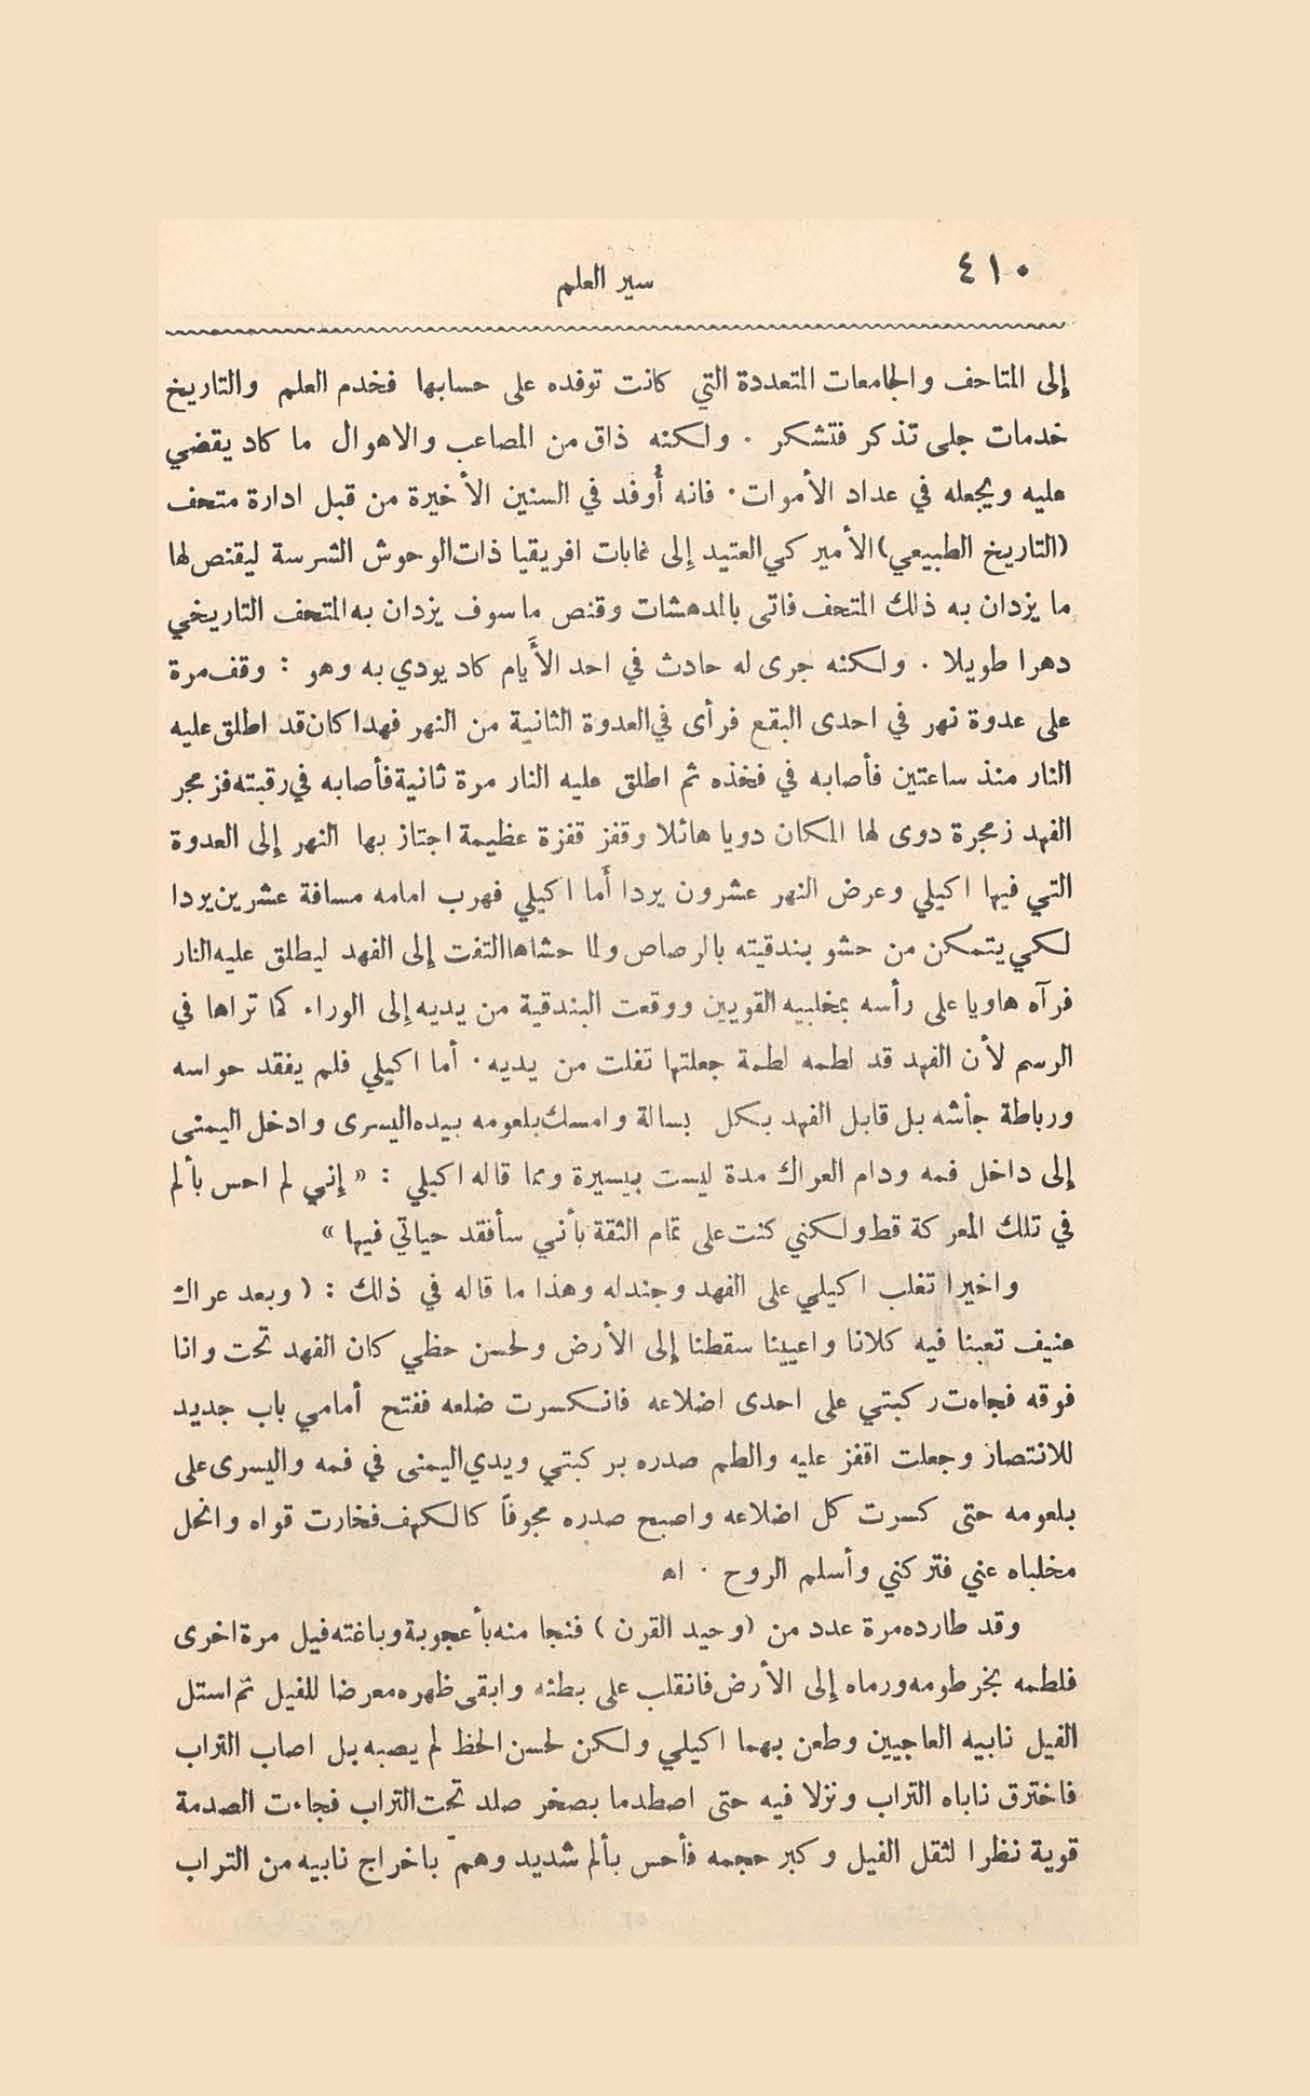 ٤١٠
سير العلم
إلى المتاحف والجامعات المتعددة التي كانت توفده على حسابها فخدم العلم والتاريخ
خدمات جلى تذكر فتشكر . ولكنه ذاق من المصاعب والاهوال ما كاد يقضي
عليه ويجعله في عداد الأموات . فانه أُوفد في السنين الأخيرة من قبل ادارة متحف
(التاريخ الطبيعي) الأميركي العتيد إلى غابات افريقيا ذات الوحوش الشرسة ليقنص لها
ما يزدان به ذلك المتحف فاتى بالمدهشات وقنص ما سوف يزدان به المتحف التاريخي
دهرا طويلا . ولكنه جرى له حادث في احد الأَيام كاد يودي به وهو : وقف مرة
على عدوة نهر في احدى البقع فرأى في العدوة الثانية من النهر فهدا كان قد اطلق عليه
النار منذ ساعتين فأصابه في فخذه ثم اطلق عليه النار مرة ثانية فأصابه في رقبته فزمجر
الفهد زمجرة دوى لها المكان دويا هائلا وقفز قفزة عظيمة اجتاز بها النهر إلى العدوة
التي فيها اكيلي وعرض النهر عشرون يردا أَما اكيلي فهرب امامه مسافة عشرين يردا
لكي يتمكن من حشو بندقيته بالرصاص ولما حشاها التفت إلى الفهد ليطلق عليه النار
فرآه هاويا على رأسه بمخلبيه القويين ووقعت البندقية من يديه إلى الوراء كما تراها في
الرسم لأن الفهد قد لطمه لطمة جعلتها تفلت من يديه . أما اكيلي فلم يفقد حواسه
ورباطة جأشه بل قابل الفهد بكل بسالة وامسك بلعومه بيده اليسرى وادخل اليمنى
إلى داخل فمه ودام العراك مدة ليست بيسيرة ومما قاله اكيلي : « إني لم احس بألم
في تلك المعركة قط ولكني كنت على تمام الثقة بأني سأفقد حياتي فيها »
واخيرا تغلب اكيلي على الفهد وجندله وهذا ما قاله في ذلك : ( وبعد عراك
عنيف تعبنا فيه كلانا واعيينا سقطنا إلى الأرض ولحسن حظي كان الفهد تحت وانا
فوقه فجاءت ركبتي على احدى اضلاعه فانكسرت ضلعه ففتح أمامي باب جديد
للانتصار وجعلت اقفز عليه والطم صدره بركبتي ويدي اليمنى في فمه واليسرى على
بلعومه حتى كسرت كل اضلاعه واصبح صدره مجوفاً كالكهف فخارت قواه وانحل
مخلباه عني فتركني وأسلم الروح . اه
وقد طارده مرة عدد من (وحيد القرن) فنجا منه بأعجوبة وباغته فيل مرة اخرى
فلطمه بخرطومه ورماه إلى الأرض فانقلب على بطنه وابقى ظهره معرضا للفيل ثم استل
الفيل نابيه العاجيين وطعن بهما اكيلي ولكن لحسن الحظ لم يصبه بل اصاب التراب
فاخترق ناباه التراب ونزلا فيه حتى اصطدما بصخر صلد تحت التراب فجاءت الصدمة
قوية نظرا لثقل الفيل وكبر حجمه فأحس بألم شديد وهمّ باخراج نابيه من التراب